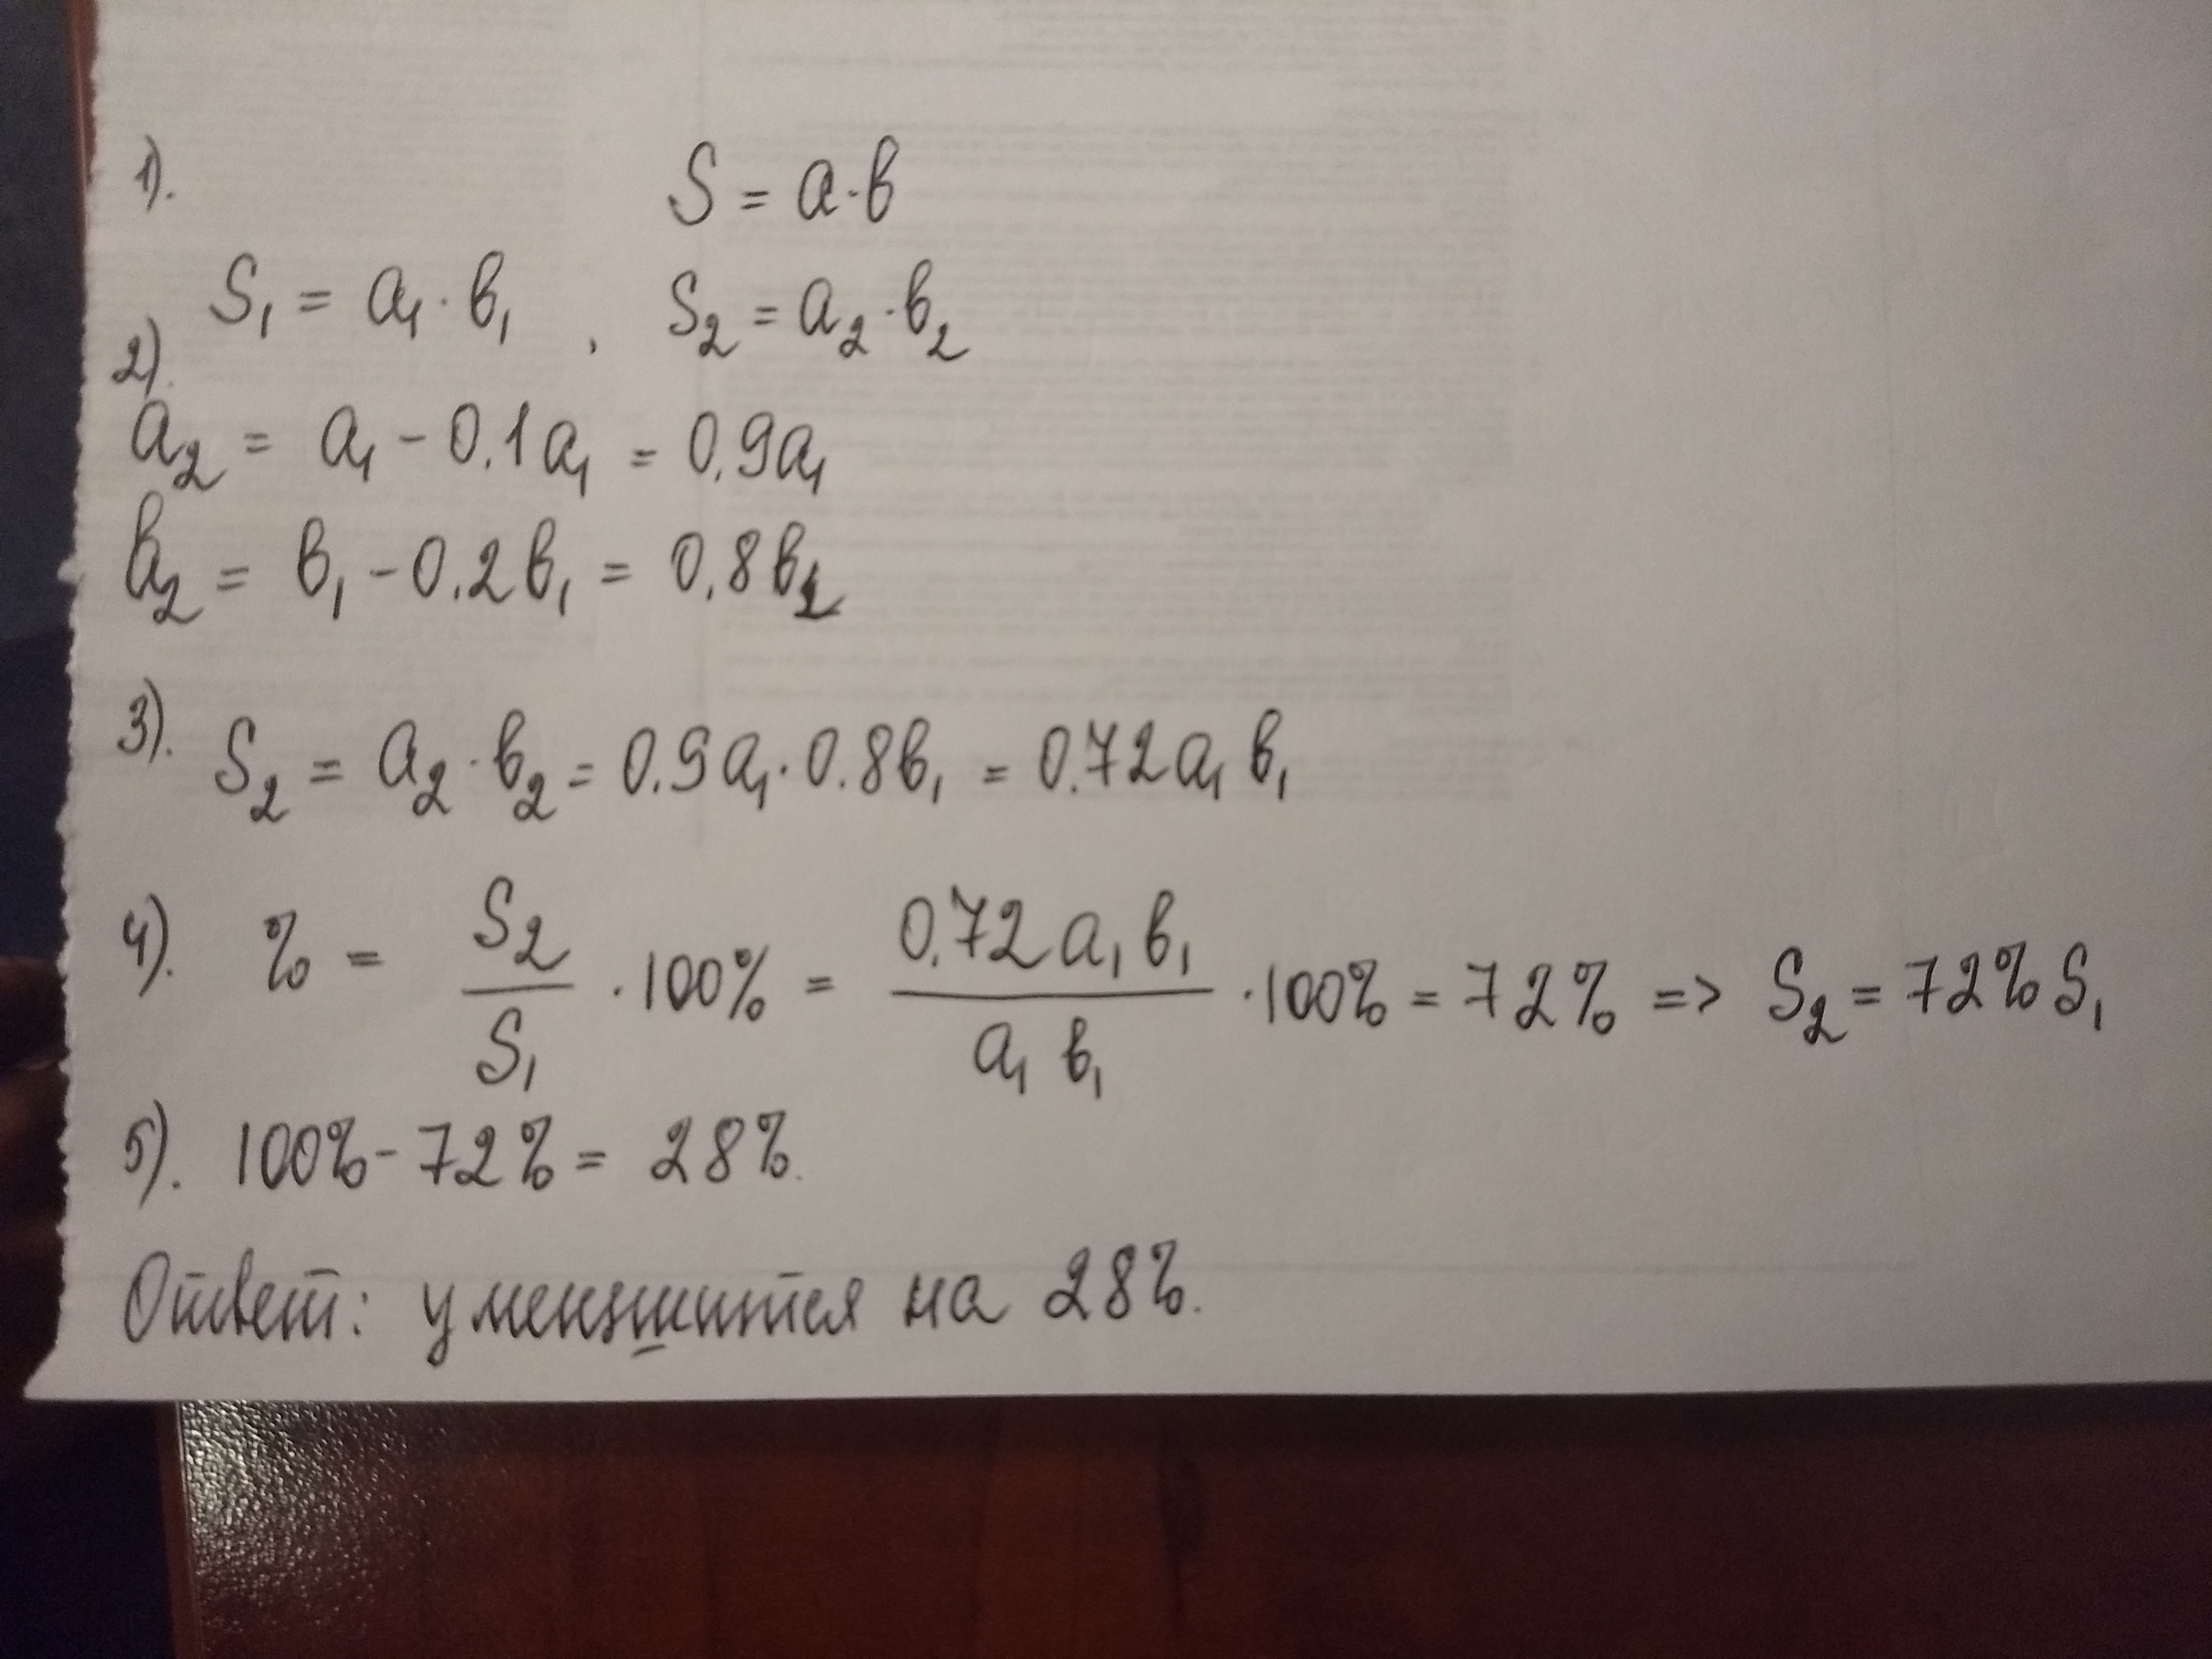 1). S = a·b
S₁ = a₁·b₁ , S₂ = a₂·b₂
2).
a₂ = a₁ - 0.1a₁ = 0.9a₁
b₂ = b₁ - 0.2b₁ = 0.8b₁
3). S₂ = a₂·b₂ = 0.9a₁·0.8b₁ = 0.72a₁b₁
4). % = S₂/S₁ ·100% = 0.72a₁b₁/a₁b₁ ·100% = 72% => S₂ = 72% S₁
5). 100% - 72% = 28%.
Ответ: уменшится на 28%.